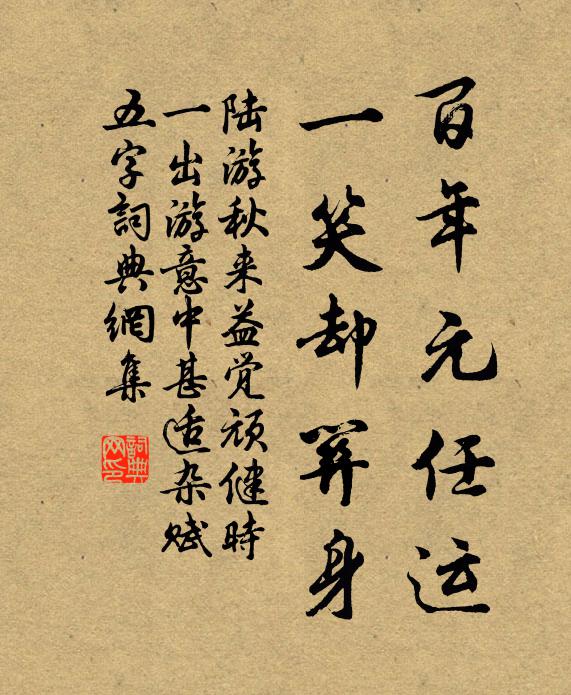 百年元任运
一笑却身
陆游秋来益觉顽健時
一出游意中甚适杂赋
五字詞典網集
詞典
网印